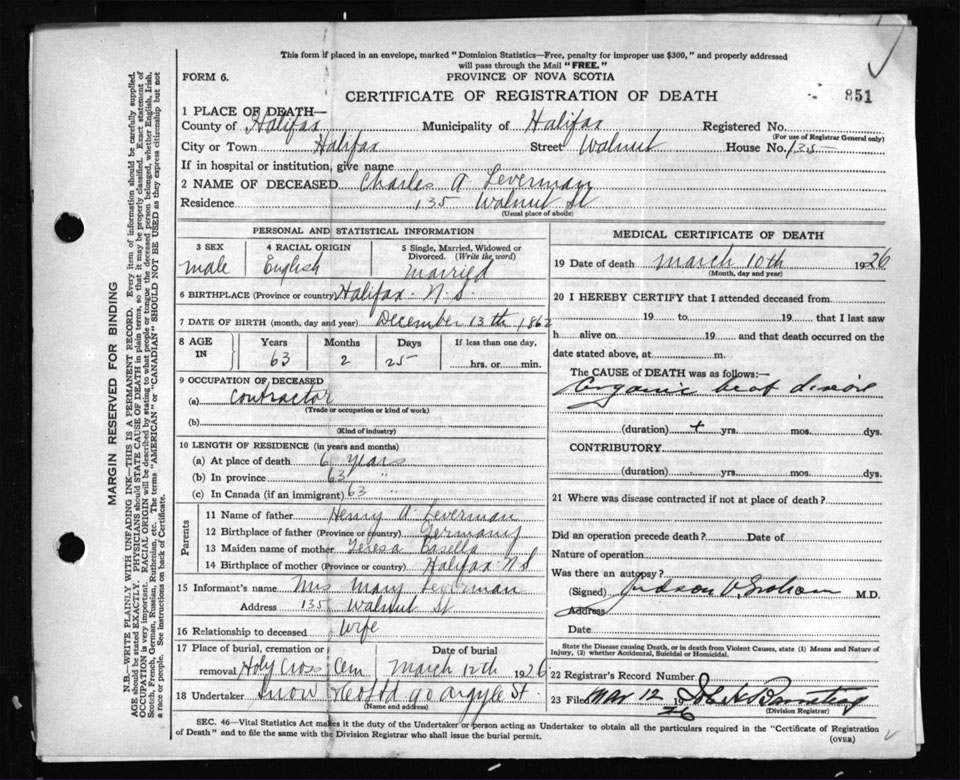 This form if placed in an envelope, marked "Dominion Statistics—Free, penalty for improper use $300," and properly addressed
will pass through the Mail "FREE."
FORM 6.
PROVINCE OF NOVA SCOTIA
CERTIFICATE OF REGISTRATION OF DEATH
851
1 PLACE OF DEATH—
County of Halifax Municipality of Halifax Registered No.
(For use of Registrar General only)
City or Town Halifax Street Walnut House No. 135
If in hospital or institution, give name
2 NAME OF DECEASED Charles A. Leverman
Residence 135 Walnut St
(Usual place of abode)
PERSONAL AND STATISTICAL INFORMATION
3 SEX 4 RACIAL ORIGIN 5 Single, Married, Widowed or
Divorced. (Write the word)
male English Married
6 BIRTHPLACE (Province or country) Halifax N.S.
7 DATE OF BIRTH (month, day and year) December 13th 1862
8 AGE IN Years Months Days If less than one day,
63 2 25 hrs. or min.
9 OCCUPATION OF DECEASED
(a) Contractor
(Trade or occupation or kind of work)
(b)
(Kind of industry)
10 LENGTH OF RESIDENCE (in years and months)
(a) At place of death 6 Years
(b) In province 63 "
(c) In Canada (if an immigrant) 63 "
Parents
11 Name of father Henry A Leverman
12 Birthplace of father (Province or country) Germany
13 Maiden name of mother Teresa Casella
14 Birthplace of mother (Province or country) Halifax N S
15 Informant's name Mrs Mary Leverman
Address 135 Walnut St
16 Relationship to deceased Wife
17 Place of burial, cremation or Date of burial
removal Holy Cross Cem March 12th 1926
18 Undertaker Snow 90 Argyle St.
(Name and address)
MEDICAL CERTIFICATE OF DEATH
19 Date of death March 10th 1926
(Month, day and year)
20 I HEREBY CERTIFY that I attended deceased from
19 to 19 that I last saw
h alive on 19 and that death occurred on the
date stated above, at m.
The CAUSE of DEATH was as follows:—
Organic heart disease
(duration) + yrs. mos. dys.
CONTRIBUTORY
(duration) yrs. mos. dys.
21 Where was disease contracted if not at place of death?
Did an operation precede death? Date of
Nature of operation
Was there an autopsy?
(Signed) Judson V. Graham M.D.
Address
Date
State the Disease causing Death, or in death from Violent Causes, state (1) Means and Nature of
Injury, (2) whether Accidental, Suicidal or Homicidal.
22 Registrar's Record Number
23 Filed Mar 12 1926
(Division Registrar)
SEC. 46—Vital Statistics Act makes it the duty of the Undertaker or person acting as Undertaker to obtain all the particulars required in the "Certificate of Registration
of Death" and to file the same with the Division Registrar who shall issue the burial permit.
(OVER)
MARGIN RESERVED FOR BINDING
N.B.—WRITE PLAINLY WITH UNFADING INK—THIS IS A PERMANENT RECORD. Every item of information should be carefully supplied.
AGE should be stated EXACTLY. PHYSICIANS should STATE CAUSE OF DEATH in plain terms, so that it may be properly classified. Exact statement of
OCCUPATION is very important. RACIAL ORIGIN will be described by stating to what people or tongue the deceased person belonged, whether English, Irish,
Scotch, French, German, Russian, Ruthenian, etc. The terms "AMERICAN" or "CANADIAN" SHOULD NOT BE USED as they express citizenship but not
a race or people. See instructions on back of Certificate.